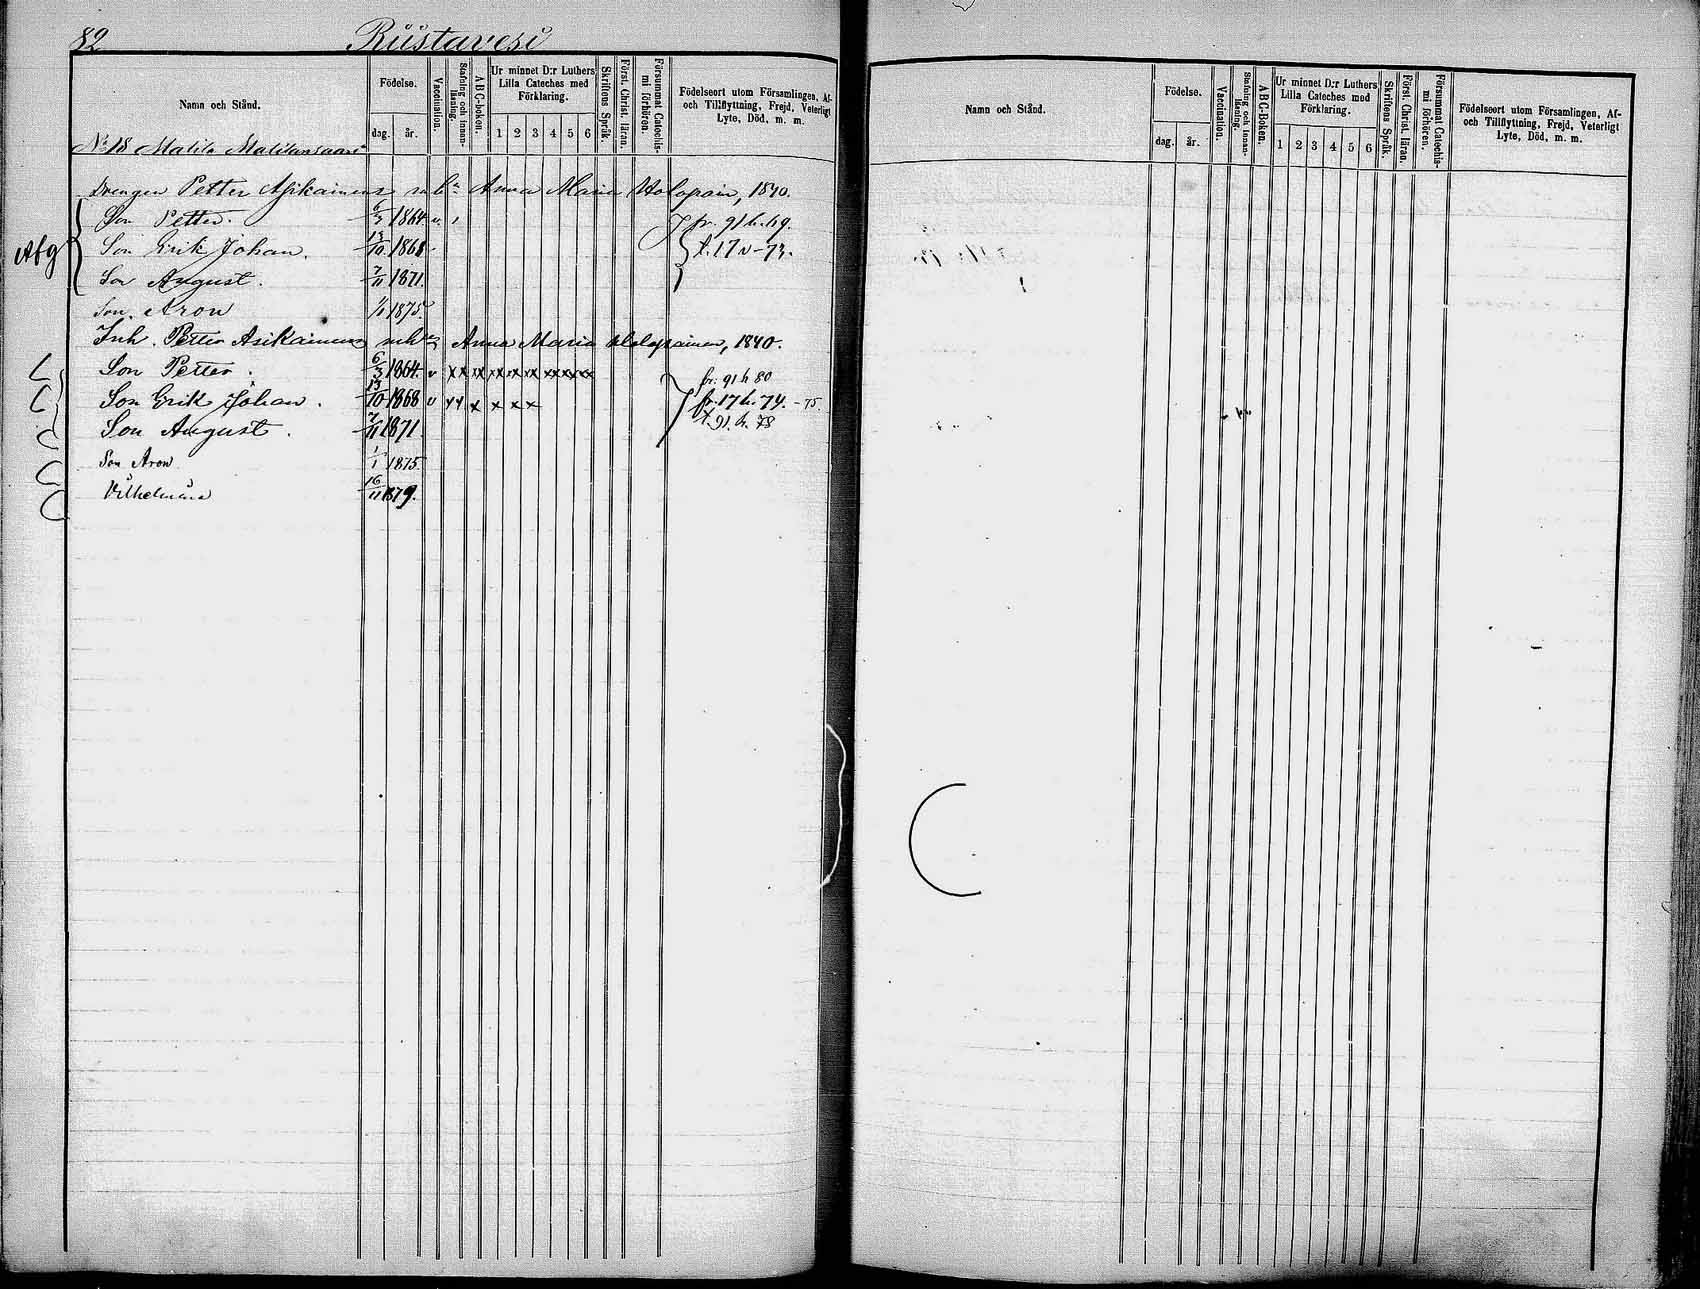 82
Riistavesi
Namn och Stånd.
Födelse.
dag. år.
Vaccination.
Stafning och Innan-läsning.
ABC-boken.
Ur minnet D:r Luthers Lilla Cateches med Förklaring.
1 2 3 4 5 6
Skriftens Språk.
Först. Christ. läran.
Försummat Catechis-mi förhören.
Födelseort utom Församlingen, Af- och Tillflyttning, Frejd, Veterligt Lyte, Död, m. m.
No 18 Matila Matilansaari
Drengen Petter Asikainens Anna Maria Holopain, 1840.
Son Petter. 6/3 1864. v fr. 91 h. 69.
Afg Son Erik Johan. 13/10 1868 t. 17 v - 73.
Son August. 7/11 1871.
Son. Aron 1/1 1875.
Inh. Petter Asikainens Anna Maria Holopainen, 1840.
Son Petter. 6/3 1864. v xx xx xx xx xx xxxxxx fr. 91 h 80
Son Erik Johan. 13/10 1868 v xx x x x x fr. 17 h. 74. - 75.
Son August. 7/11 1871. t. 91. h. 78
Son Aron 1/1 1875.
Vilhelmina 16/11 1879.
Namn och Stånd.
Födelse.
dag. år.
Vaccination.
Stafning och Innan-läsning.
ABC-Boken.
Ur minnet D:r Luthers Lilla Cateches med Förklaring.
1 2 3 4 5 6
Skriftens Språk.
Först. Christ. läran.
Försummat Catechis-mi förhören.
Födelseort utom Församlingen, Af- och Tillflyttning, Frejd, Veterligt Lyte, Död, m. m.